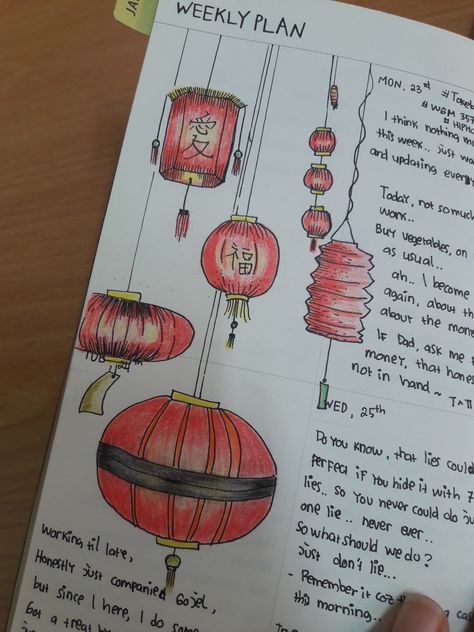 JA
WEEKLY PLAN
MON, 23rd #Take
# WGM 357
# HIPH
I think nothing mu
this week.. just wa
and updating every
Today, not so much
work..
Buy vegetables, on
as usual..
ah.. I become
again, about th
about the mone
If Dad, ask me
money, that hones
not in hand ~ T^T
愛
福
TUE, 24th
WED, 25th
Do you know, that lies coul
perfect if you hide it with 7
lies.. So you never could do ju
one lie .. never ever..
So what should we do?
just don't lie...
- Remember it coz
this morning...
Working til late,
Honestly just companied Gojel,
but since I here, I do som
Got a treat by